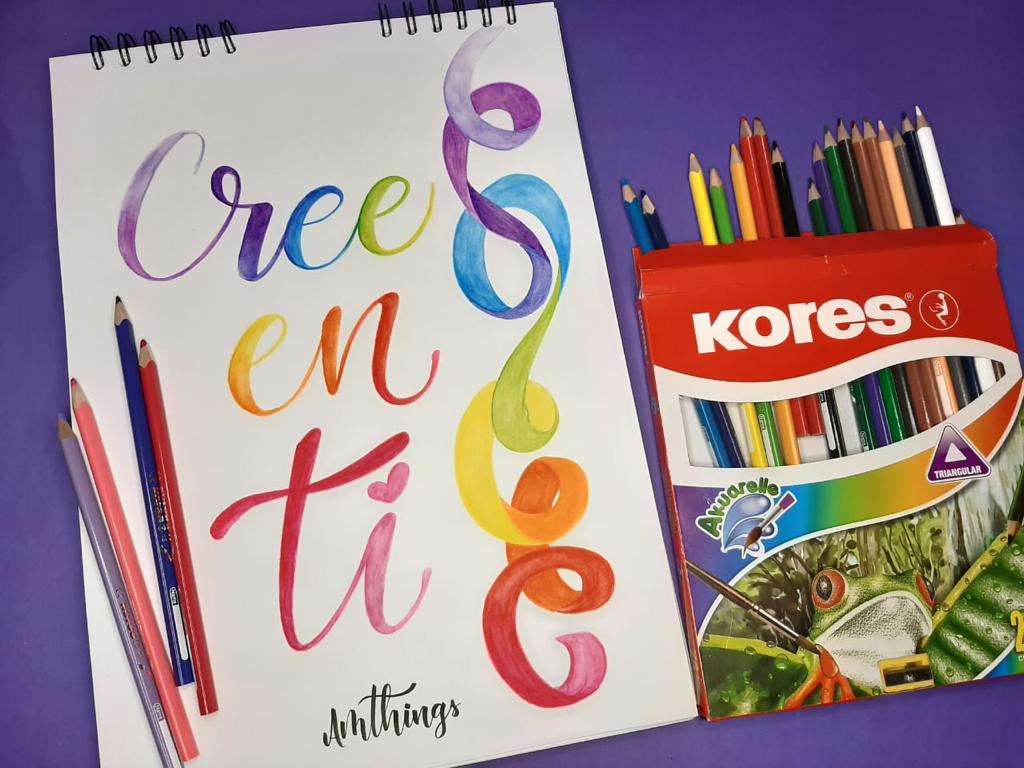 Cree
en
ti
Amthings
KORES®
TRIANGULAR
Akuarelle